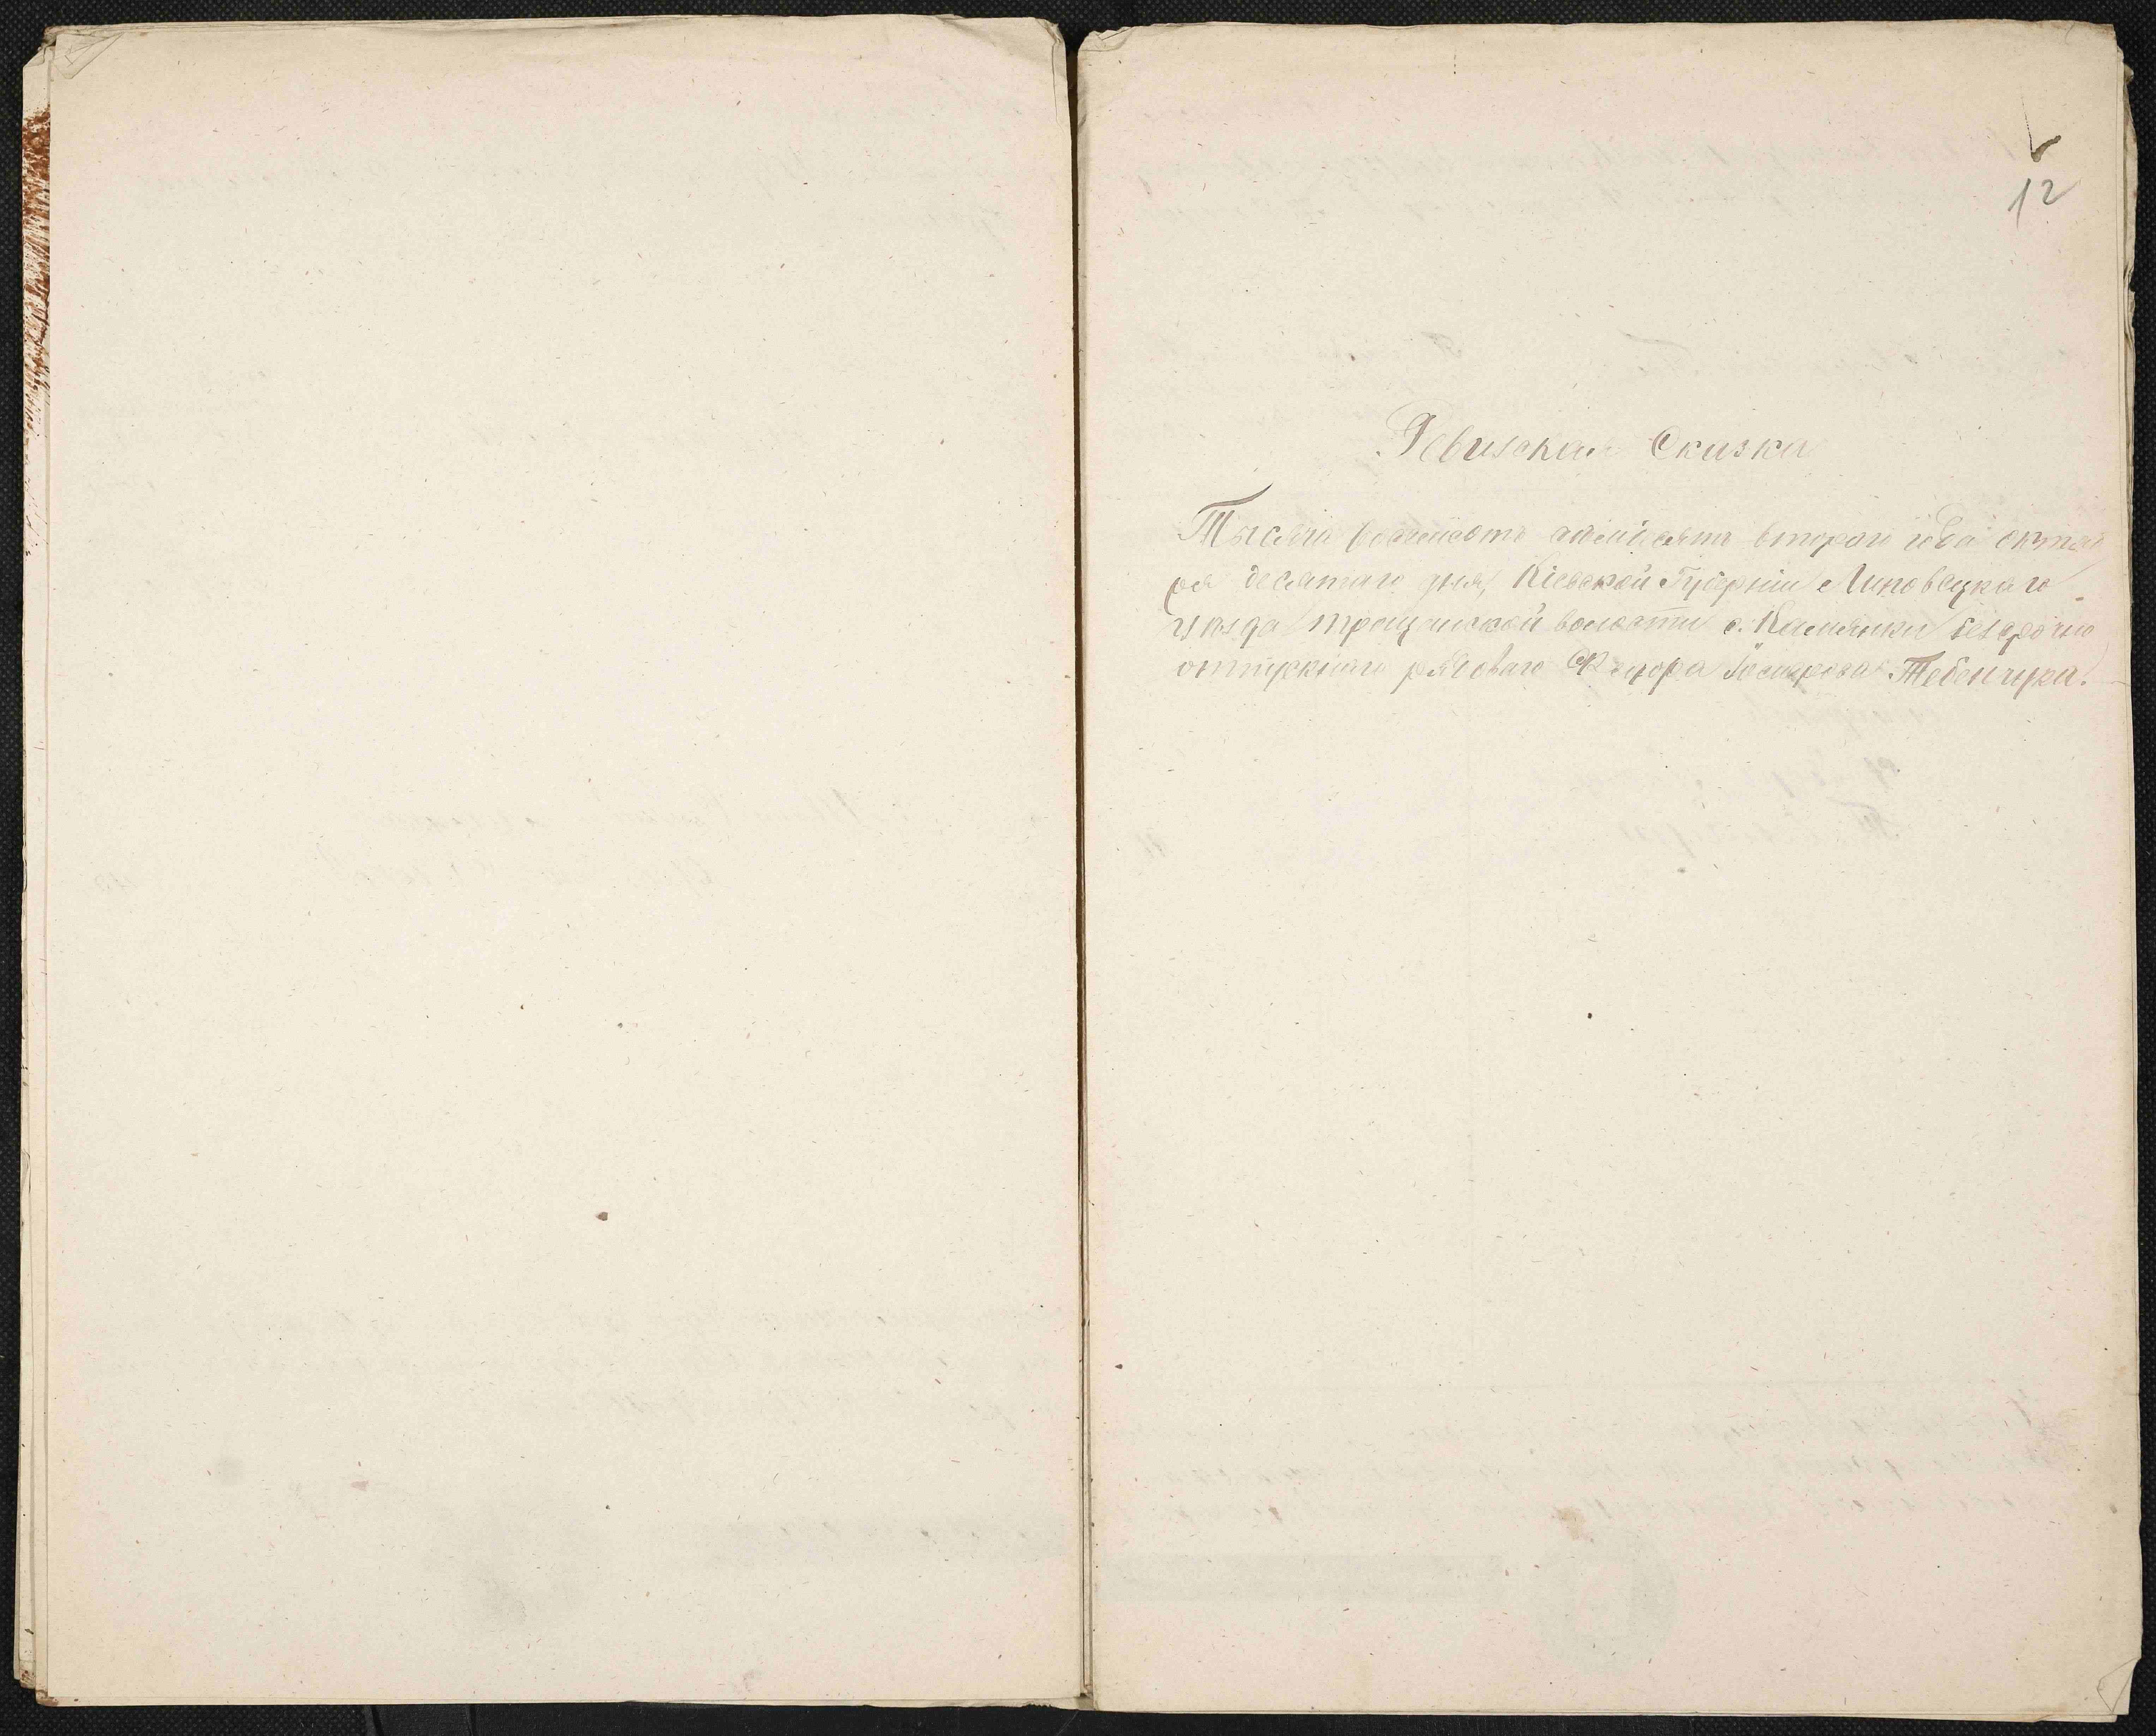 12
Ревизская Сказка
Тысяча восемсотъ второго года октяб
ря десятаго дня, Кіевской Губерніи Липовецкаго
уѣзда трощинской волости с. Камянки безсрочно
отпускного рядоваго Ѳедора Тебенчука.